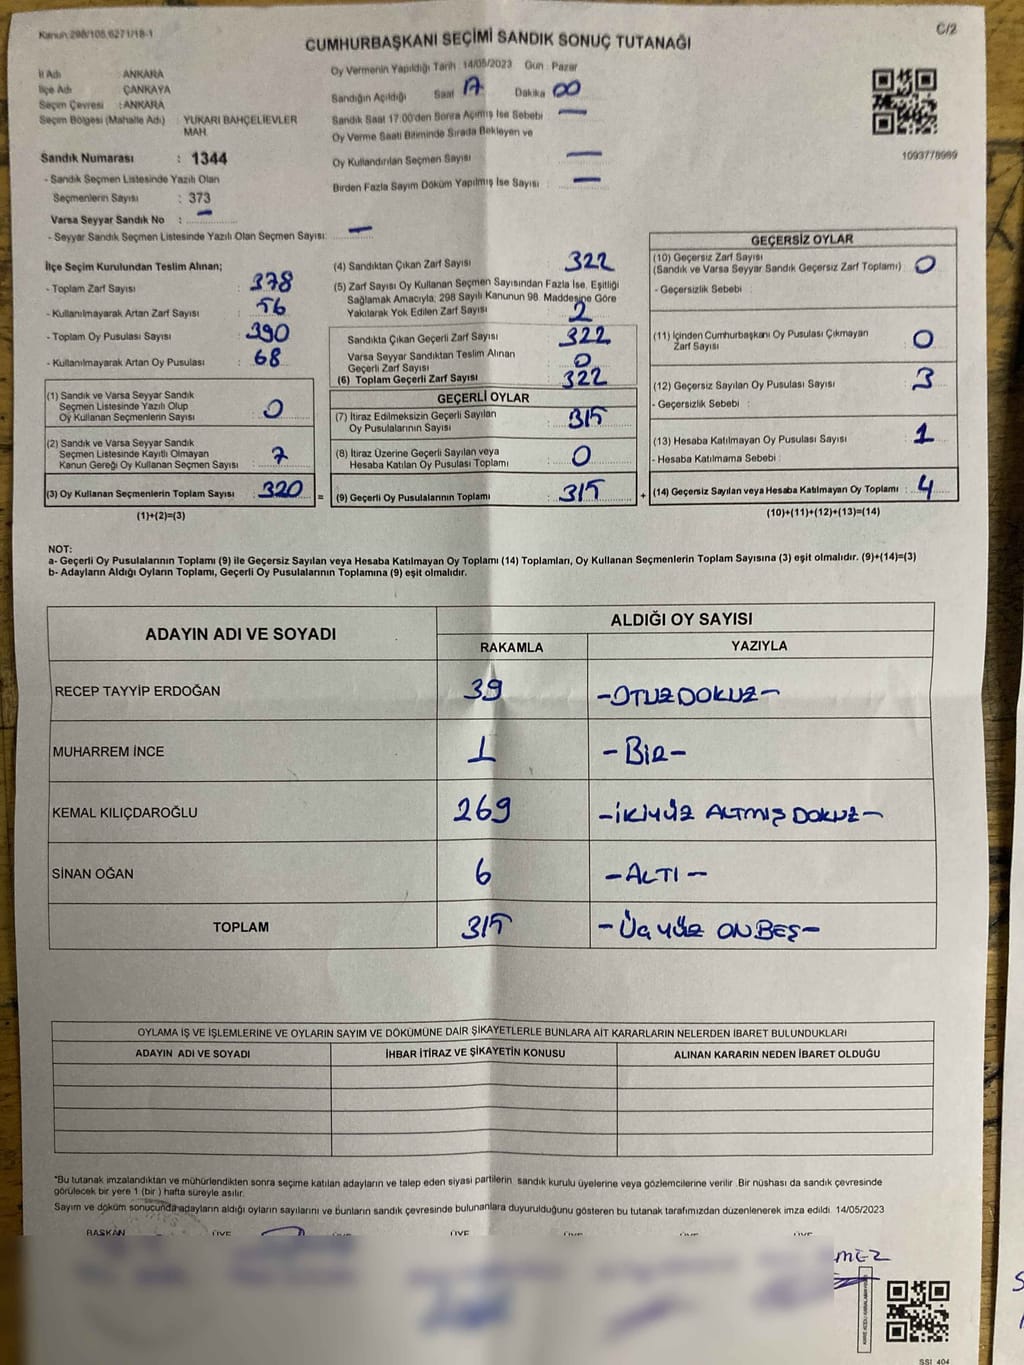 Kanun:298/105,6271/18-1
C/2
CUMHURBAŞKANI SEÇİMİ SANDIK SONUÇ TUTANAĞI
İl Adı : ANKARA
İlçe Adı : ÇANKAYA
Seçim Çevresi : ANKARA
Seçim Bölgesi (Mahalle Adı) : YUKARI BAHÇELİEVLER MAH.
Sandık Numarası : 1344
- Sandık Seçmen Listesinde Yazılı Olan
Seçmenlerin Sayısı : 373
Varsa Seyyar Sandık No : —
- Seyyar Sandık Seçmen Listesinde Yazılı Olan Seçmen Sayısı: —
Oy Vermenin Yapıldığı Tarih : 14/05/2023 Gün : Pazar
Sandığın Açıldığı Saat 17 Dakika 00
Sandık Saat 17:00'den Sonra Açılmış İse Sebebi —
Oy Verme Saati Bitiminde Sırada Bekleyen ve
Oy Kullandırılan Seçmen Sayısı —
Birden Fazla Sayım Döküm Yapılmış İse Sayısı : —
1093778989
İlçe Seçim Kurulundan Teslim Alınan;
- Toplam Zarf Sayısı : 378
- Kullanılmayarak Artan Zarf Sayısı : 56
- Toplam Oy Pusulası Sayısı : 390
- Kullanılmayarak Artan Oy Pusulası : 68
(1) Sandık ve Varsa Seyyar Sandık
Seçmen Listesinde Yazılı Olup
Oy Kullanan Seçmenlerin Sayısı : 0
(2) Sandık ve Varsa Seyyar Sandık
Seçmen Listesinde Kayıtlı Olmayan
Kanun Gereği Oy Kullanan Seçmen Sayısı : 7
(3) Oy Kullanan Seçmenlerin Toplam Sayısı : 320 =
(1)+(2)=(3)
(4) Sandıktan Çıkan Zarf Sayısı : 322
(5) Zarf Sayısı Oy Kullanan Seçmen Sayısından Fazla İse, Eşitliği
Sağlamak Amacıyla, 298 Sayılı Kanunun 98. Maddesine Göre
Yakılarak Yok Edilen Zarf Sayısı : 2
Sandıkta Çıkan Geçerli Zarf Sayısı : 322
Varsa Seyyar Sandıktan Teslim Alınan
Geçerli Zarf Sayısı : 0
(6) Toplam Geçerli Zarf Sayısı : 322
GEÇERLİ OYLAR
(7) İtiraz Edilmeksizin Geçerli Sayılan
Oy Pusulalarının Sayısı : 315
(8) İtiraz Üzerine Geçerli Sayılan veya
Hesaba Katılan Oy Pusulası Toplamı : 0
(9) Geçerli Oy Pusulalarının Toplamı : 315 +
GEÇERSİZ OYLAR
(10) Geçersiz Zarf Sayısı
(Sandık ve Varsa Seyyar Sandık Geçersiz Zarf Toplamı) : 0
- Geçersizlik Sebebi :
(11) İçinden Cumhurbaşkanı Oy Pusulası Çıkmayan
Zarf Sayısı : 0
(12) Geçersiz Sayılan Oy Pusulası Sayısı : 3
- Geçersizlik Sebebi :
(13) Hesaba Katılmayan Oy Pusulası Sayısı : 1
- Hesaba Katılmama Sebebi :
(14) Geçersiz Sayılan veya Hesaba Katılmayan Oy Toplamı : 4
(10)+(11)+(12)+(13)=(14)
NOT:
a- Geçerli Oy Pusulalarının Toplamı (9) ile Geçersiz Sayılan veya Hesaba Katılmayan Oy Toplamı (14) Toplamları, Oy Kullanan Seçmenlerin Toplam Sayısına (3) eşit olmalıdır. (9)+(14)=(3)
b- Adayların Aldığı Oyların Toplamı, Geçerli Oy Pusulalarının Toplamına (9) eşit olmalıdır.
ADAYIN ADI VE SOYADI
ALDIĞI OY SAYISI
RAKAMLA YAZIYLA
RECEP TAYYİP ERDOĞAN 39 -OTUZDOKUZ-
MUHARREM İNCE 1 -BİR-
KEMAL KILIÇDAROĞLU 269 -İKİYÜZ ALTMIŞ DOKUZ-
SİNAN OĞAN 6 -ALTI-
TOPLAM 315 -ÜÇ YÜZ ON BEŞ-
OYLAMA İŞ VE İŞLEMLERİNE VE OYLARIN SAYIM VE DÖKÜMÜNE DAİR ŞİKAYETLERLE BUNLARA AİT KARARLARIN NELERDEN İBARET BULUNDUKLARI
ADAYIN ADI VE SOYADI İHBAR İTİRAZ VE ŞİKAYETİN KONUSU ALINAN KARARIN NEDEN İBARET OLDUĞU
*Bu tutanak imzalandıktan ve mühürlendikten sonra seçime katılan adayların ve talep eden siyasi partilerin sandık kurulu üyelerine veya gözlemcilerine verilir. Bir nüshası da sandık çevresinde
görülecek bir yere 1 (bir ) hafta süreyle asılır.
Sayım ve döküm sonucunda adayların aldığı oyların sayılarını ve bunların sandık çevresinde bulunanlara duyurulduğunu gösteren bu tutanak tarafımızdan düzenlenerek imza edildi. 14/05/2023
BAŞKAN ÜYE ÜYE ÜYE ÜYE ÜYE
MEZ
SSI_404